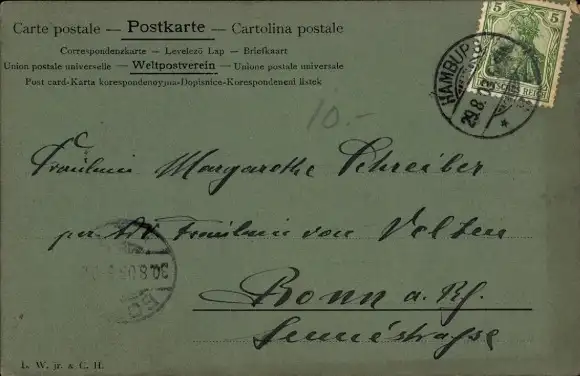 Carte postale — Postkarte — Cartolina postale
Correspondenzkarte — Levelező Lap — Briefkaart
Union postale universelle — Weltpostverein — Unione postale universale
Post card-Karta korespondencyjna-Dopisnice-Korespondenční lístek
5 5
DEUTSCHES REICH
HAMBURG
29.8.03
10.-
Fräulein Margarethe Schreiber
per Adr Fräulein von Velsen
30.8.03
BO
Bonn a. Rh.
Lennéstrasse
L. W. jr. & C. H.